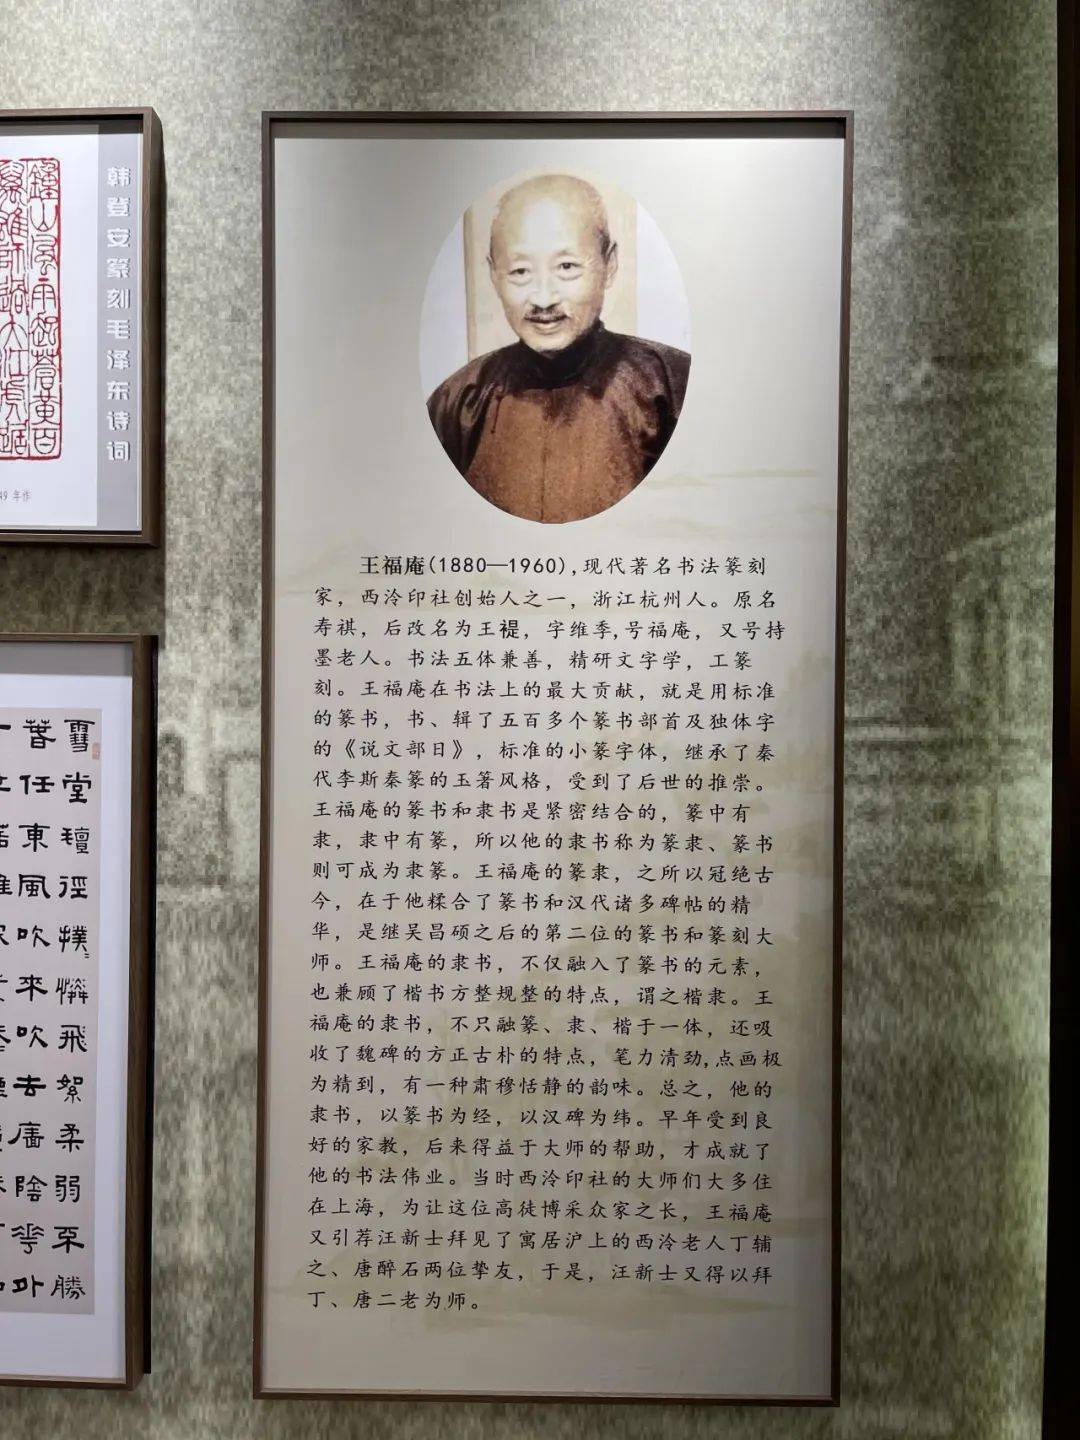 韩登安篆刻毛泽东诗词
钟山风雨起苍黄百
49 年作
雪堂璮徑撲懶飛絮柔弱不勝
暮任東風吹來吹去庿陰花外
王福庵(1880—1960),现代著名书法篆刻
家，西泠印社创始人之一，浙江杭州人。原名
寿祺，后改名为王禔，字维季,号福庵，又号持
墨老人。书法五体兼善，精研文字学，工篆
刻。王福庵在书法上的最大贡献，就是用标准
的篆书，书、辑了五百多个篆书部首及独体字
的《说文部日》，标准的小篆字体，继承了秦
代李斯秦篆的玉箸风格，受到了后世的推崇。
王福庵的篆书和隶书是紧密结合的，篆中有
隶，隶中有篆，所以他的隶书称为篆隶、篆书
则可成为隶篆。王福庵的篆隶，之所以冠绝古
今，在于他糅合了篆书和汉代诸多碑帖的精
华，是继吴昌硕之后的第二位的篆书和篆刻大
师。王福庵的隶书，不仅融入了篆书的元素，
也兼顾了楷书方整规整的特点，谓之楷隶。王
福庵的隶书，不只融篆、隶、楷于一体，还吸
收了魏碑的方正古朴的特点，笔力清劲,点画极
为精到，有一种肃穆恬静的韵味。总之，他的
隶书，以篆书为经，以汉碑为纬。早年受到良
好的家教，后来得益于大师的帮助，才成就了
他的书法伟业。当时西泠印社的大师们大多住
在上海，为让这位高徒博采众家之长，王福庵
又引荐汪新士拜见了寓居沪上的西泠老人丁辅
之、唐醉石两位挚友，于是，汪新士又得以拜
丁、唐二老为师。